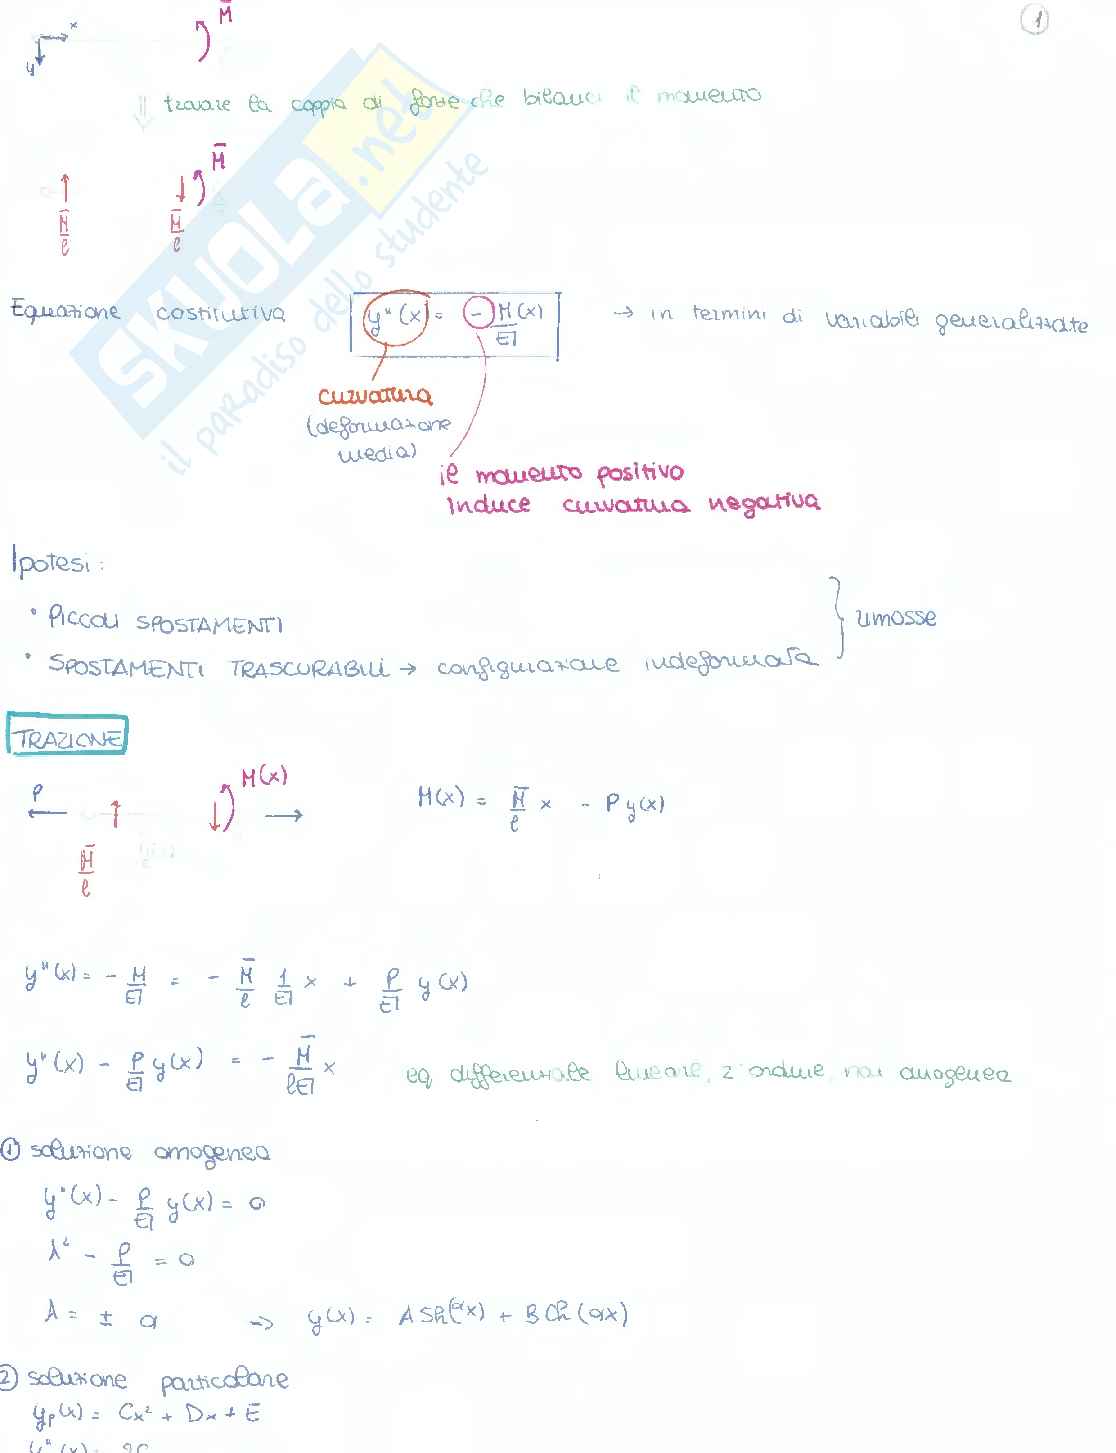 1
x
M̄
y
⇓ trovare la coppia di forze che bilanci il momento
M̄
M̄/l M̄/l
SKUOLA.net
il paradiso dello studente
Equazione costitutiva y"(x) = - M(x)/EI → in termini di variabili generalizzate
curvatura
(deformazione
media)
il momento positivo
induce curvatura negativa
Ipotesi:
• PICCOLI SPOSTAMENTI
• SPOSTAMENTI TRASCURABILI → configurazione indeformata } rimosse
TRAZIONE
P M(x) M(x) = M̄/l x - P y(x)
M̄/l
y"(x) = - M/EI = - M̄/l 1/EI x + P/EI y(x)
y"(x) - P/EI y(x) = - M̄/lEI x eq differenziale lineare, 2° ordine, non omogenea
① soluzione omogenea
y"(x) - P/EI y(x) = 0
λ² - P/EI = 0
λ = ± α → y(x) = A Sh(αx) + B Ch(αx)
② soluzione particolare
yp(x) = Cx² + Dx + E